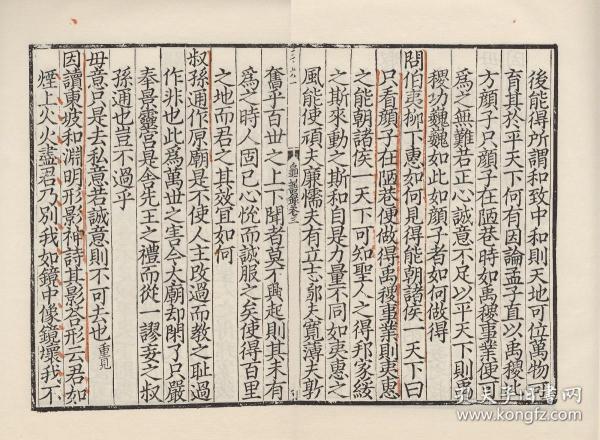 後能得所謂和致中和則天地可位萬物可
育其於平天下何有因論孟子直以禹稷比
方顔子只顔子在陋巷時如禹稷事業便可
爲之無難若正心誠意不足以平天下則禹
稷功巍巍如此如顔子者如何做得
問伯夷柳下惠如何見得能朝諸侯一天下曰
只看顔子在陋巷便做得禹稷事業則夷惠
之能朝諸侯一天下可知聖人之得邦家綏
之斯來動之斯和自是力量不同如夷惠之
風能使頑夫廉懦夫有立志鄙夫寛薄夫敦
奮乎百世之上下聞者莫不興起則其未有
爲之時人固已心恱而誠服之矣使得百里
之地而君之其效宜如何
叔孫通作原廟是不使人主改過而教之耻過
作非也此爲萬世之害今太廟却閉了只嚴
奉景靈宫是舍先王之禮而從一謬妄之叔
孫通也豈不過乎
毋意只是去私意若誠意則不可去也重見
因讀東坡和淵明形影神詩其影荅形云君如
煙上火火盡君乃別我如鏡中像鏡壞我不
孔夫子旧书网
www.kongfz.com